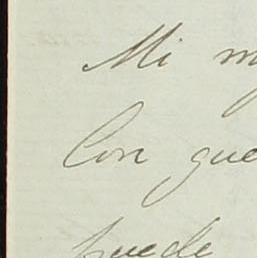 Mi m
Con que
puede